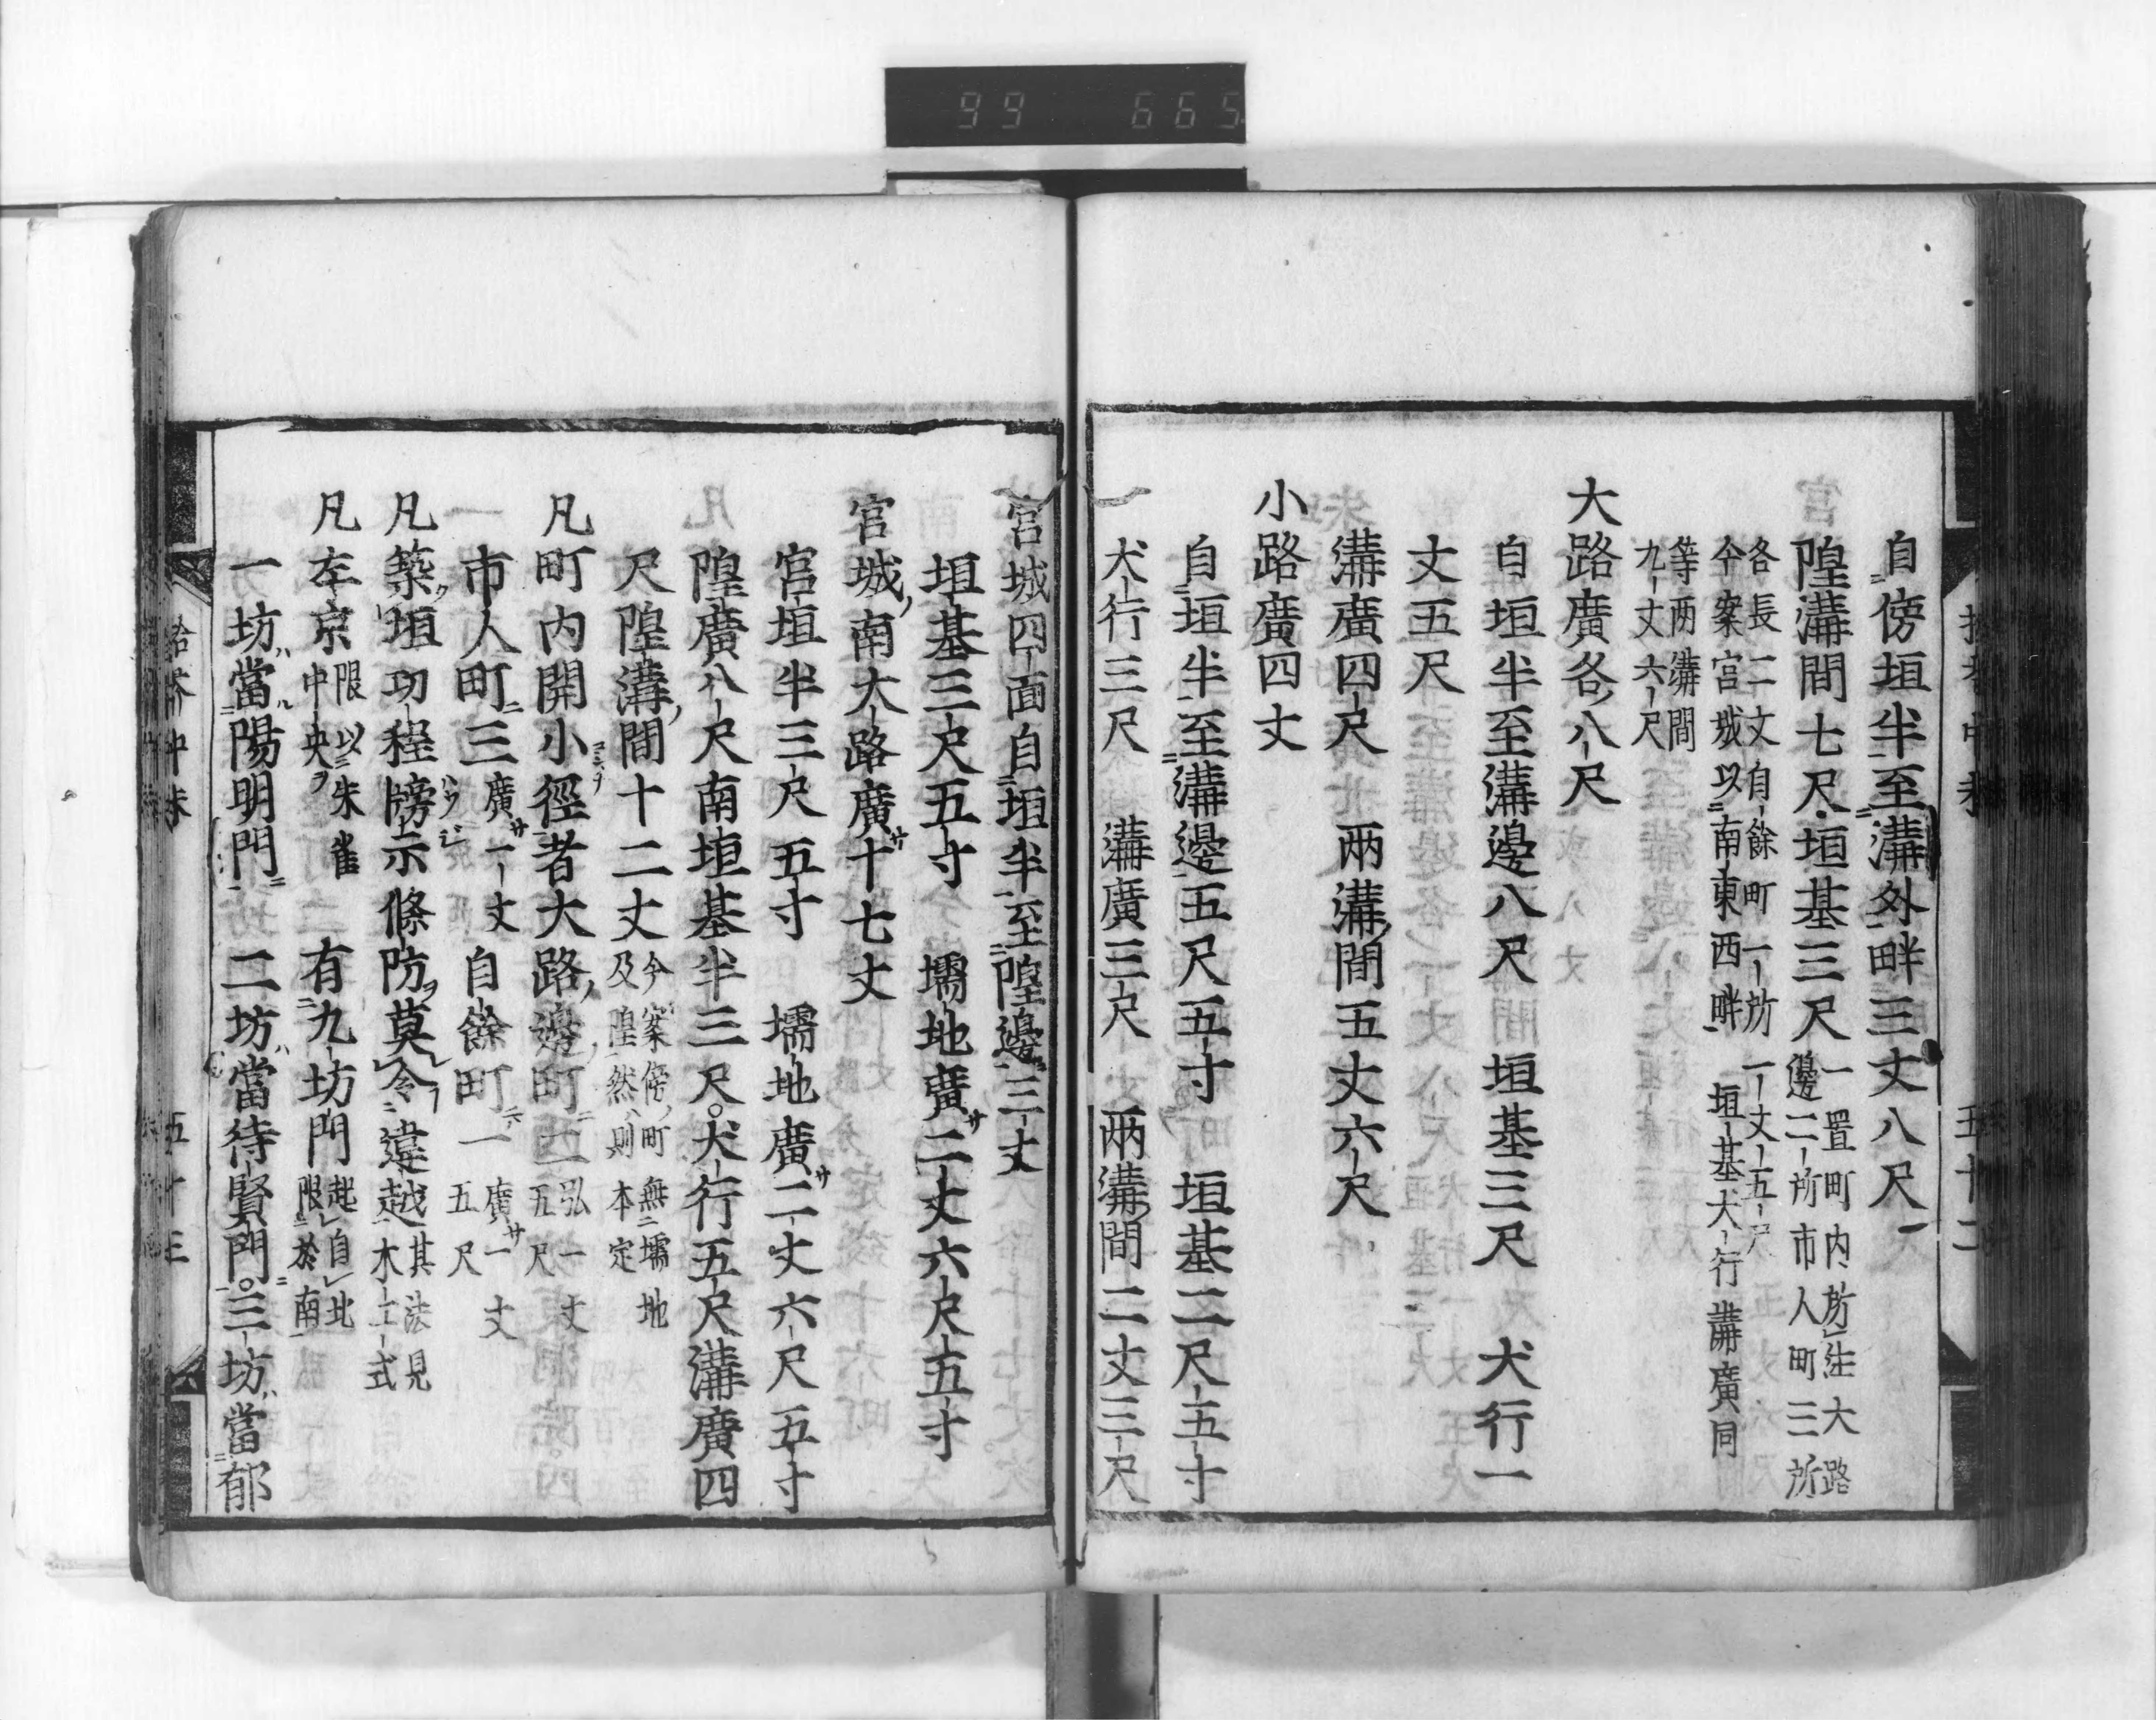 99 665
自傍垣半至溝外畔三丈八尺
隍溝間七尺垣基三尺
一置町内所生大路
邊二所市人町三所
各長二丈自餘町一所一丈五尺
今案宮城以南東西畔垣基犬行溝廣同
等兩溝間
九丈六尺
大路廣各八尺
自垣半至溝邊八尺 垣基三尺 犬行一
丈五尺
溝廣四尺 兩溝間五丈六尺
小路廣四丈
自垣半至溝邊五尺五寸 垣基二尺五寸
犬行三尺 溝廣三尺 兩溝間二丈三尺
宮城四面自垣半至隍邊三丈
垣基三尺五寸 壖地廣二丈六尺五寸
宮城南大路廣十七丈
宮垣半三尺五寸 壖地廣二丈六尺五寸
隍廣八尺南垣基半三尺犬行五尺溝廣四
尺隍溝間十二丈
今案傍町無壖地
及隍然則本定
凡町内開小徑者大路邊町二
弘一丈
五尺
市人町三
廣一丈
自餘町一
廣一丈
五尺
凡築垣功程牓示條防莫令違越
其法見
木工式
凡左京
限以朱雀
中央
有九坊門
起自北
限於南
一坊當陽明門 二坊當待賢門三坊當郁